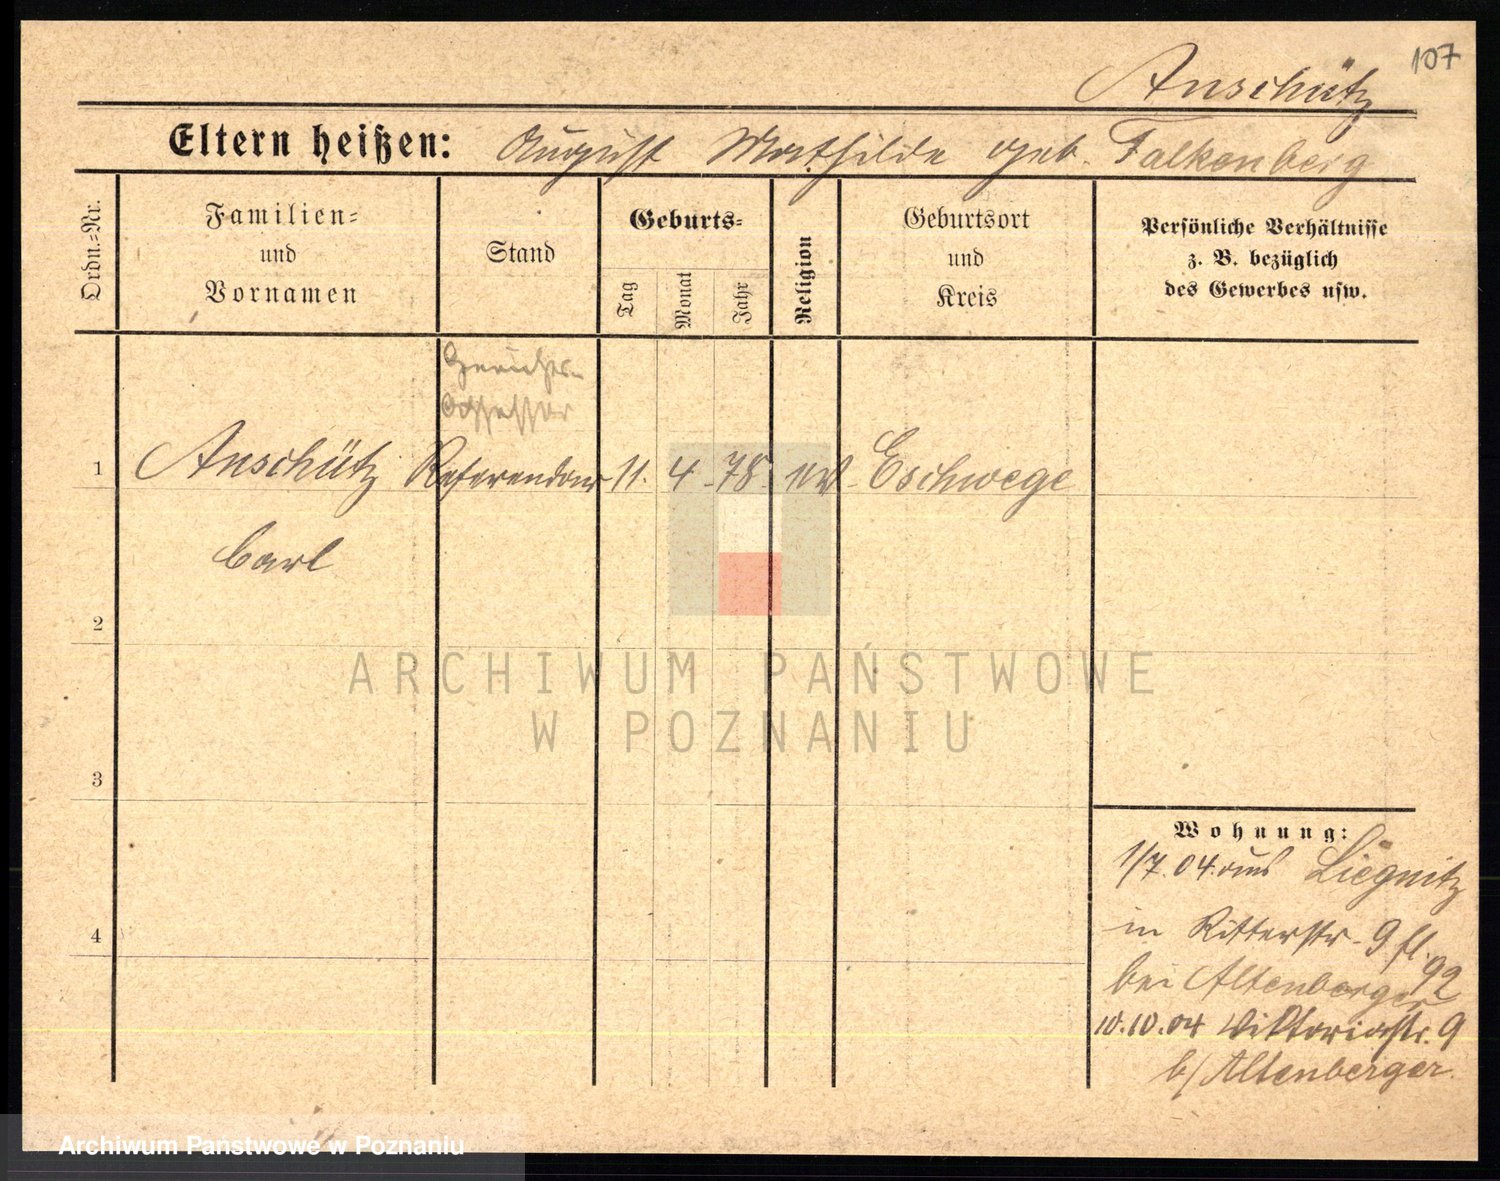 107
Anschütz
Eltern heißen: August Mathilde geb. Falkenberg
Ordn.=Nr.
Familien=
und
Vornamen
Stand
Geburts=
Tag
Monat
Jahr
Religion
Geburtsort
und
Kreis
Persönliche Verhältnisse
z. B. bezüglich
des Gewerbes usw.
Gerichts-
Assessor
1 Anschütz Referendar 11. 4. 78. Eschwege
Carl
2
3
4
ARCHIWUM PAŃSTWOWE
W POZNANIU
Wohnung:
1/7.04. aus Liegnitz
in Ritterstr. 9 fl. 92
bei Altenberger
10.10.04 Viktoriastr. 9
b/ Altenberger.
Archiwum Państwowe w Poznaniu